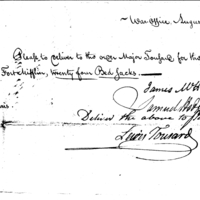 War office, August
Please to deliver to the order Major Tousard for the
Fort Mifflin, twenty four Bed Sacks.
James McH
Samuel Hod
Deliver the above to
Lewis Tousard